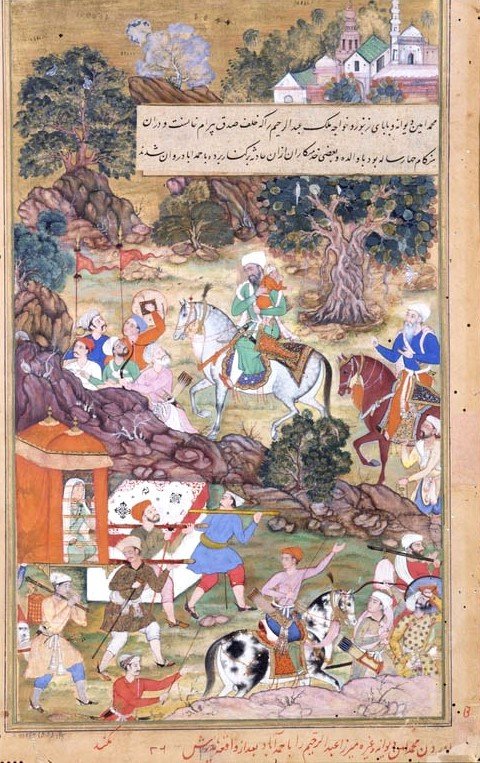 محمد امین دیوانه و بابای زنبور و خواجه ملک عبد الرحیم را که خلف صدق بیرام خانست و دران
هنگام چهار ساله بود با والده و بعضی خدمتکاران ازان حادثه برکنار برده باحمداباد روان شدند
محمد امین دیوانه وغیره میرزا عبدالرحیم را باحمداباد بعد از واقعه پدرش ۲۶
B